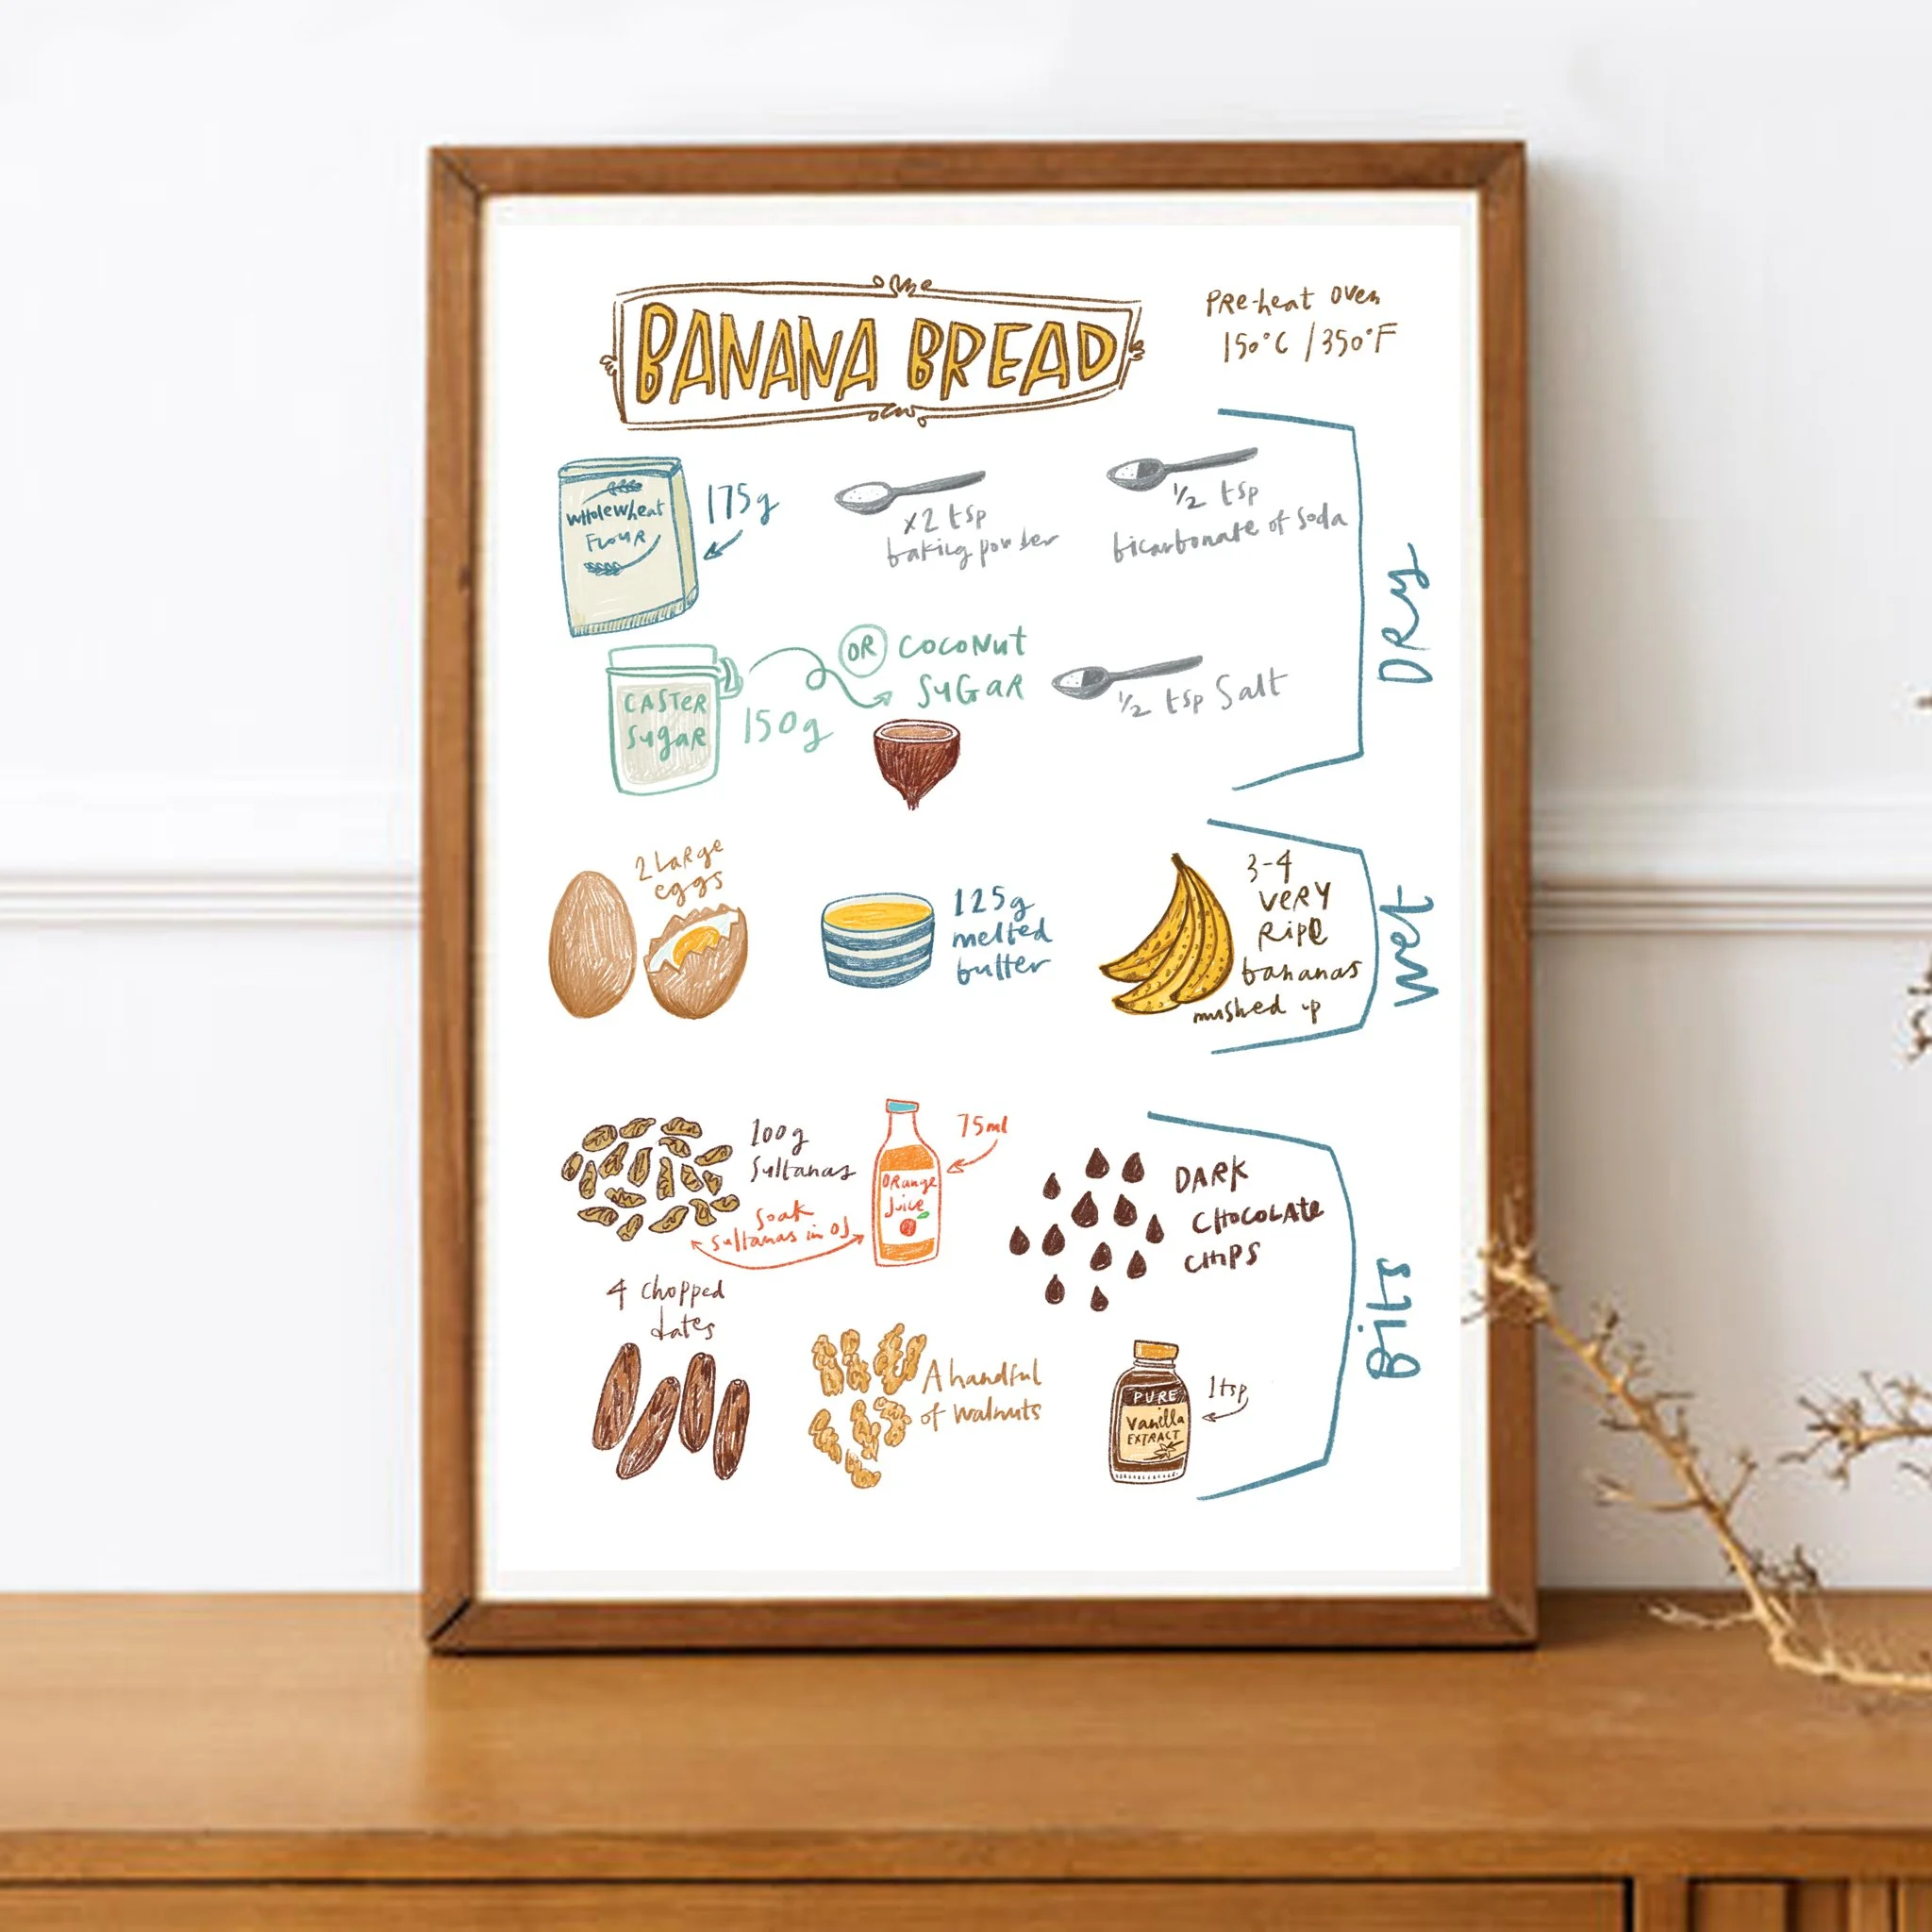 BANANA BREAD
PRe-heat oven
150°C / 350°F
WHoleWheat
FLOUR
175g
x2 tsp
baking powder
1/2 tsp
bicarbonate of Soda
DRy
CASTeR
SugaR
150g
OR COCONut
SuGaR
1/2 tsp Salt
2 LaRge
eggs
125g
melted
butter
3-4
VeRY
Ripe
bananas
mushed up
wet
100g
Sultanas
Soak
Sultanas in OJ
ORange
Juice
75ml
DARK
CHOCOLAte
CHIPS
4 chopped
dates
A handful
of walnuts
PURE
Vanilla
EXTRACT
1tsp
Bits